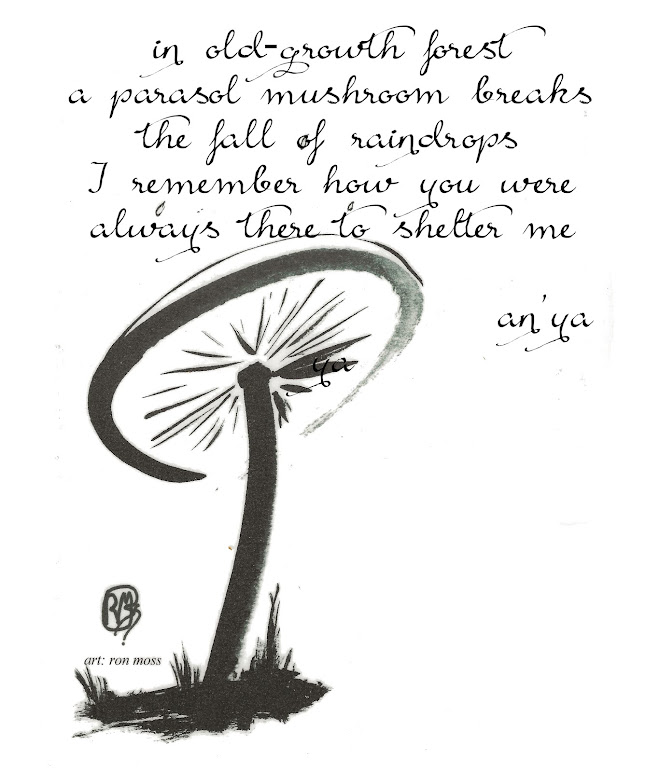 in old-growth forest
a parasol mushroom breaks
the fall of raindrops
I remember how you were
always there to shelter me
an'ya
ya
art: ron moss